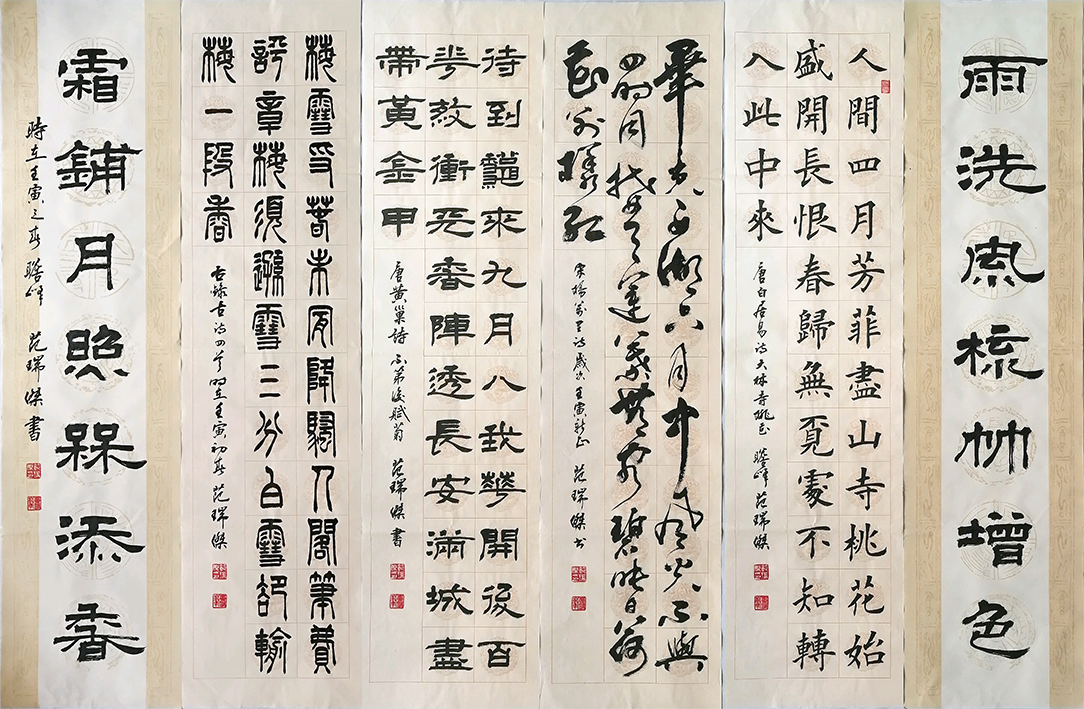 雨洗風梳竹增色
人間四月芳菲盡山寺桃花始
盛開長恨春歸無覓處不知轉
入此中來
唐白居易詩大林寺桃花 瞻峰 范瑞傑
畢竟西湖六月中風光不與
四時同接天蓮葉無窮碧映日荷
花別樣紅
宋楊萬里詩歲次壬寅新正 范瑞傑書
待到龝來九月八我華開後百
花殺衝天香陣透長安滿城盡
帶黃金甲
唐黃巢詩 不第後賦菊 范瑞傑書
梅雪爭春未肯降騷人閣筆費
評章梅須遜雪三分白雪卻輸
梅一段香
右錄古詩四首時在壬寅初春 范瑞傑
霜鋪月照槑添香
時在壬寅之春 瞻峰 范瑞傑書